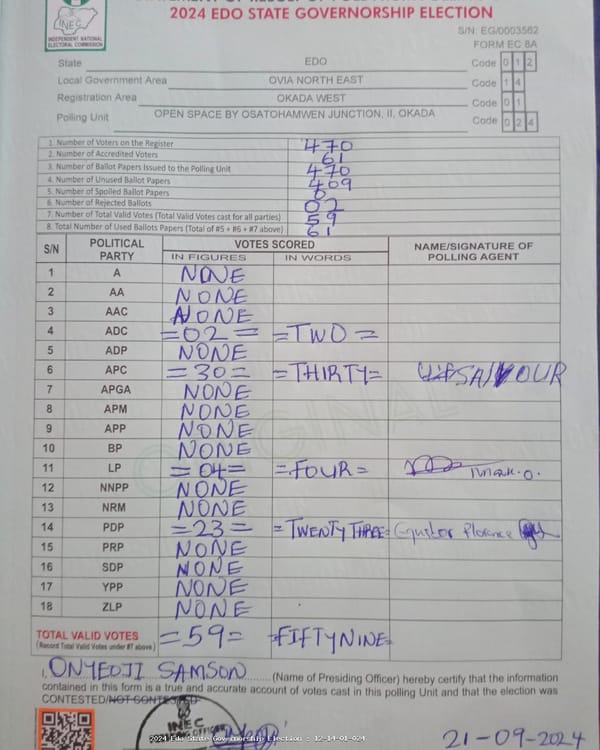 2024 EDO STATE GOVERNORSHIP ELECTION
INEC
INDEPENDENT NATIONAL ELECTORAL COMMISSION
S/N: EG/0003562
FORM EC 8A
State EDO Code 0 1 2
Local Government Area OVIA NORTH EAST Code 1 4
Registration Area OKADA WEST Code 0 1
Polling Unit OPEN SPACE BY OSATOHAMWEN JUNCTION, II, OKADA Code 0 2 4
1. Number of Voters on the Register 470
2. Number of Accredited Voters 61
3. Number of Ballot Papers Issued to the Polling Unit 470
4. Number of Unused Ballot Papers 409
5. Number of Spoiled Ballot Papers 0
6. Number of Rejected Ballots 02
7. Number of Total Valid Votes (Total Valid Votes cast for all parties) 59
8. Total Number of Used Ballots Papers (Total of #5 + #6 + #7 above) 61
S/N POLITICAL PARTY VOTES SCORED NAME/SIGNATURE OF POLLING AGENT
IN FIGURES IN WORDS
1 A NONE
2 AA NONE
3 AAC NONE
4 ADC =02= =TWO=
5 ADP NONE
6 APC =30= =THIRTY= SAVOUR
7 APGA NONE
8 APM NONE
9 APP NONE
10 BP NONE
11 LP =04= =FOUR=
12 NNPP NONE
13 NRM NONE
14 PDP =23= =TWENTY THREE= Florence
15 PRP NONE
16 SDP NONE
17 YPP NONE
18 ZLP NONE
ORIGINAL
TOTAL VALID VOTES =59= =FIFTYNINE=
(Record Total Valid Votes under #7 above)
I, ONYEDJI SAMSON (Name of Presiding Officer) hereby certify that the information
contained in this form is a true and accurate account of votes cast in this polling Unit and that the election was
CONTESTED/NOT CONTESTED
INEC
2024 Edo State Governorship Election : 12-14-01-024
21-09-2024